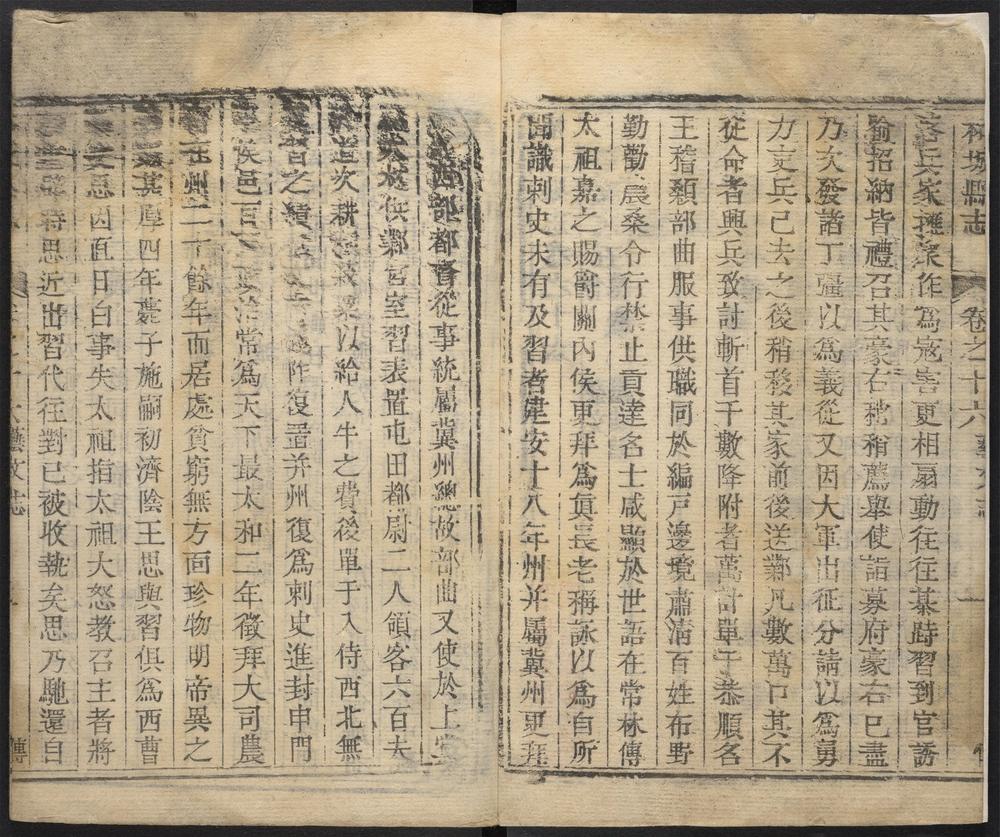 柘城縣志 卷之十六 藝文志 一 傳
落兵家擁眾作為寇害更相扇動往往棊跱習到官誘
喻招納皆禮召其豪右稍稍薦舉使詣募府豪右已盡
乃次發諸丁彊以為義從又因大軍出征分請以為勇
力吏兵已去之後稍移其家前後送鄴凡數萬口其不
從命者興兵致討斬首千數降附者萬計單于恭順名
王稽顙部曲服事供職同於編戶邊境肅清百姓布野
勤勸農桑令行禁止貢達名士咸顯於世語在常林傳
太祖嘉之賜爵關內侯更拜為真長老稱詠以為自所
聞識刺史未有及習者建安十八年州并屬冀州更拜
西部都督從事統屬冀州總故部曲又使於上黨
取大木供鄴宮室習表置屯田都尉二人領客六百夫
於道次耕種菽粟以給人牛之費後單于入侍西北無
習之績 復置并州復為刺史進封申門
侯邑百戶政治常為天下最太和二年徵拜大司農
習在州二十餘年而居處貧窮無方面珍物明帝異之
其厚四年薨子施嗣初濟陰王思與習俱為西曹
令史思因直日白事失太祖指太祖大怒教召主者將
時思近出習代往對已被收執矣思乃馳還自
藝文志 傳